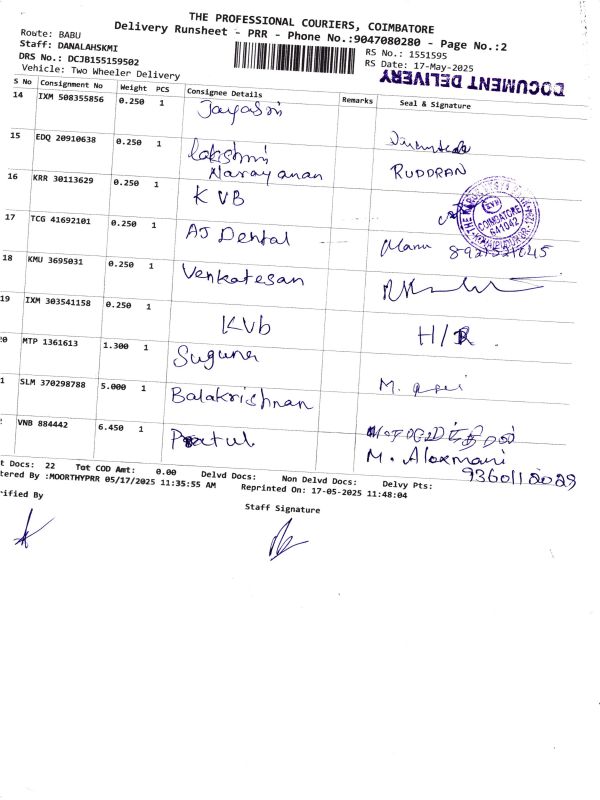 THE PROFESSIONAL COURIERS, COIMBATORE
Delivery Runsheet - PRR - Phone No.:9047080280 - Page No.:2
Route: BABU
Staff: DANALAHSKMI
RS No.: 1551595
DRS No.: DCJB155159502
RS Date: 17-May-2025
Vehicle: Two Wheeler Delivery
DOCUMENT DELIVERY
S No Consignment No Weight PCS Consignee Details Remarks Seal & Signature
14 IXM 508355856 0.250 1 Jayasri
15 EDQ 20910638 0.250 1 Lakshmi Narayanan RUDDRAN
16 KRR 30113629 0.250 1 KVB
COIMBATORE 641042
17 TCG 41692101 0.250 1 AJ Dental Manu
18 KMU 3695031 0.250 1 Venkatesan
19 IXM 303541158 0.250 1 KVb H/R
0 MTP 1361613 1.300 1 Suguna
1 SLM 370298788 5.000 1 Balakrishnan M.
VNB 884442 6.450 1
t Docs: 22 Tot COD Amt: 0.00 Delvd Docs: Non Delvd Docs: Delvy Pts:
tered By :MOORTHYPRR 05/17/2025 11:35:55 AM Reprinted On: 17-05-2025 11:48:04
rified By
Staff Signature